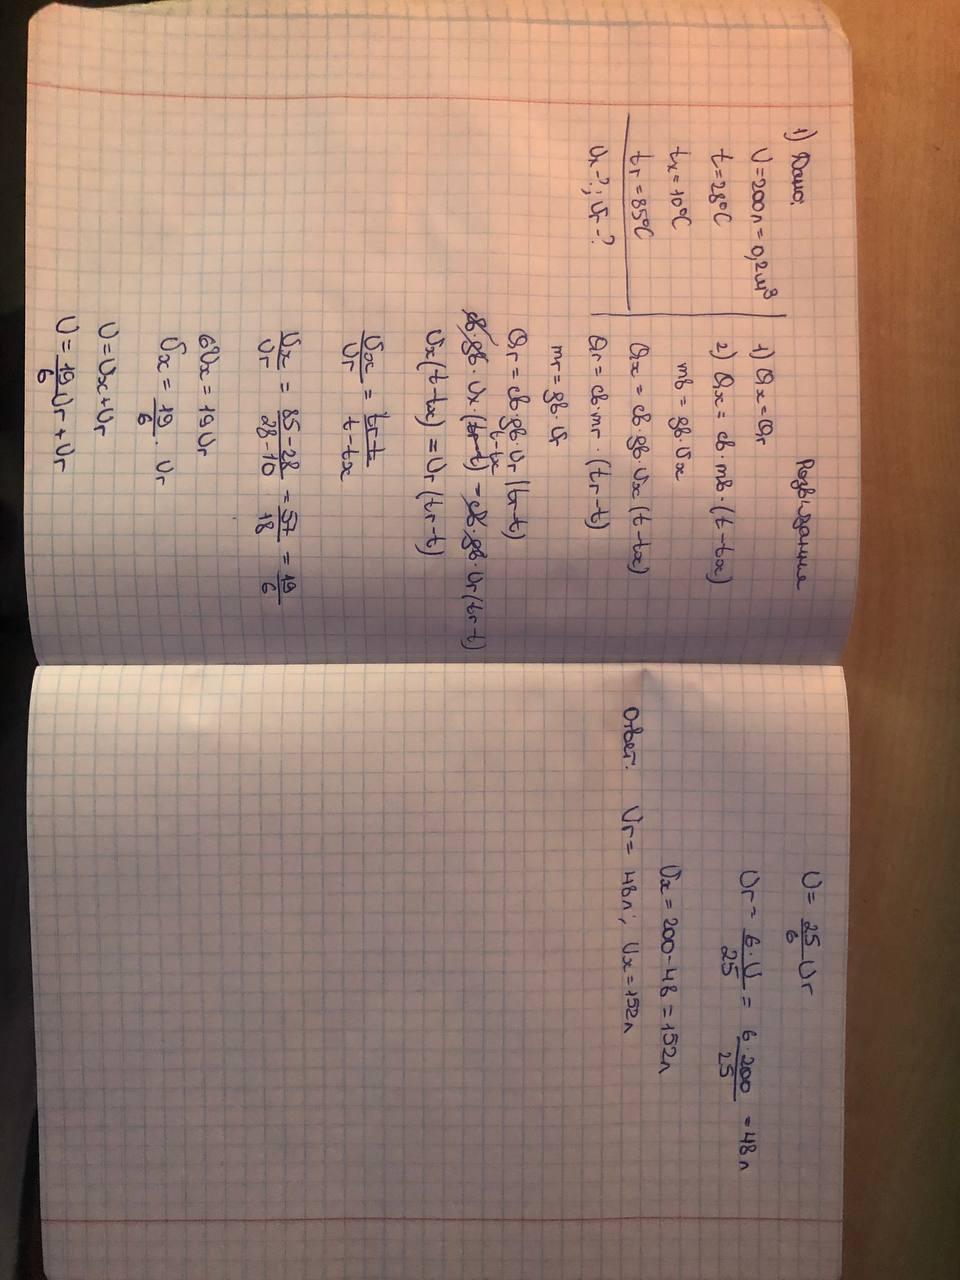 1) Дано:
V=200л=0,2м³
t=28°C
tx=10°C
tг=85°C
Vx-?; Vг-?
Розв'язання
1) Qx=Qг
2) Qx=cв·mв·(t-tx)
mв=ρв·Vx
Qx=cв·ρв·Vx(t-tx)
Qг=cв·mг·(tг-t)
mг=ρв·Vг
Qг=cв·ρв·Vг(tг-t)
t-tx
cв·ρв·Vx·(tг-t)=cв·ρв·Vг(tг-t)
Vx(t-tx)=Vг(tг-t)
Vx/Vг=tг-t/t-tx
Vx/Vг=85-28/28-10=57/18=19/6
6Vx=19Vг
Vx=19/6·Vг
V=Vx+Vг
V=19/6Vг+Vг
V=25/6Vг
Vг=6·V/25=6·200/25=48л
Vx=200-48=152л
Ответ: Vг=48л; Vx=152л